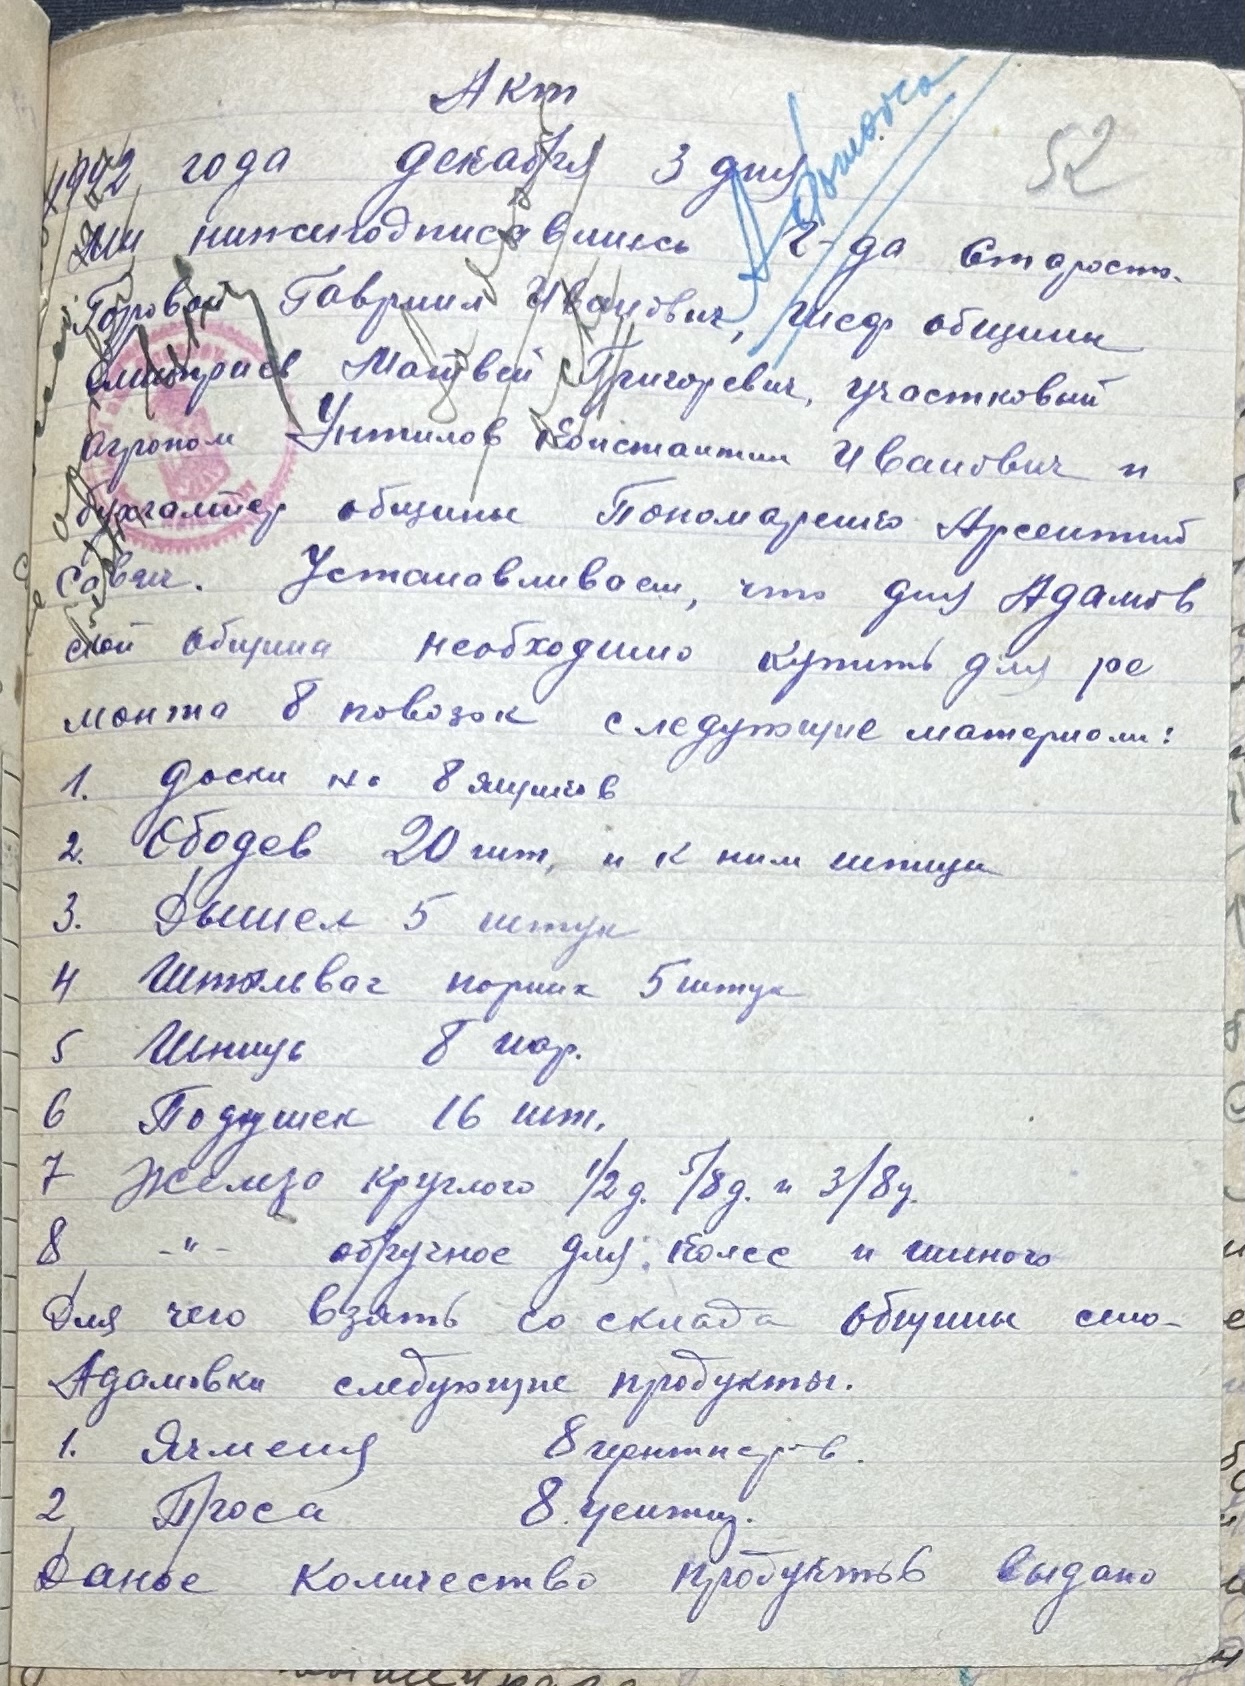 Акт
52
1942 года декабря 3 дня
Мы нижеподписавшиесь г-да Старосто
Гавриил Иванович, шеф общины
Матвей Григоревич, участковый
агроном Унтилов Константин Иванович и
бухгалтер общины Пономаренко Арсентий
Савич. Устанавливаем, что для Адамов
ской общины необходимо купить для ре
монта 8 повозок следующие материали:
1. Доски на 8 ящиков
2. Ободев 20 шт, и к ним шпици
3. Дышел 5 штук
4 Штельваг 5 штук
5 8 пар.
6 Подушек 16 шт.
7 Железо круглого 1/2 д. 5/8 д. и 3/8 д.
8 -"- обручное для колес и шиного
Для чего взять со склада общины село-
Адамовки следующие продукты.
1. Ячменя 8 центнеров.
2 Проса 8 центн.
Даное количество продуктов выдано